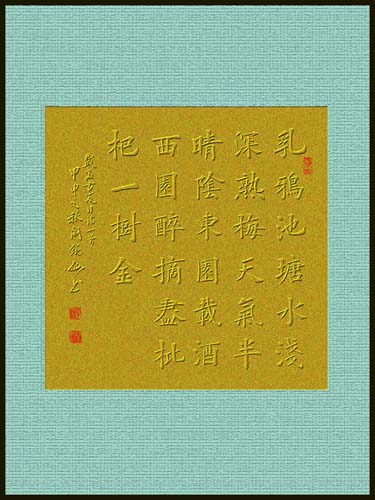 乳鴉池塘水淺
深熟梅天氣半
晴陰東園載酒
西園醉摘盡枇
杷一樹金
戴復古夏日詩一首
甲申之秋書